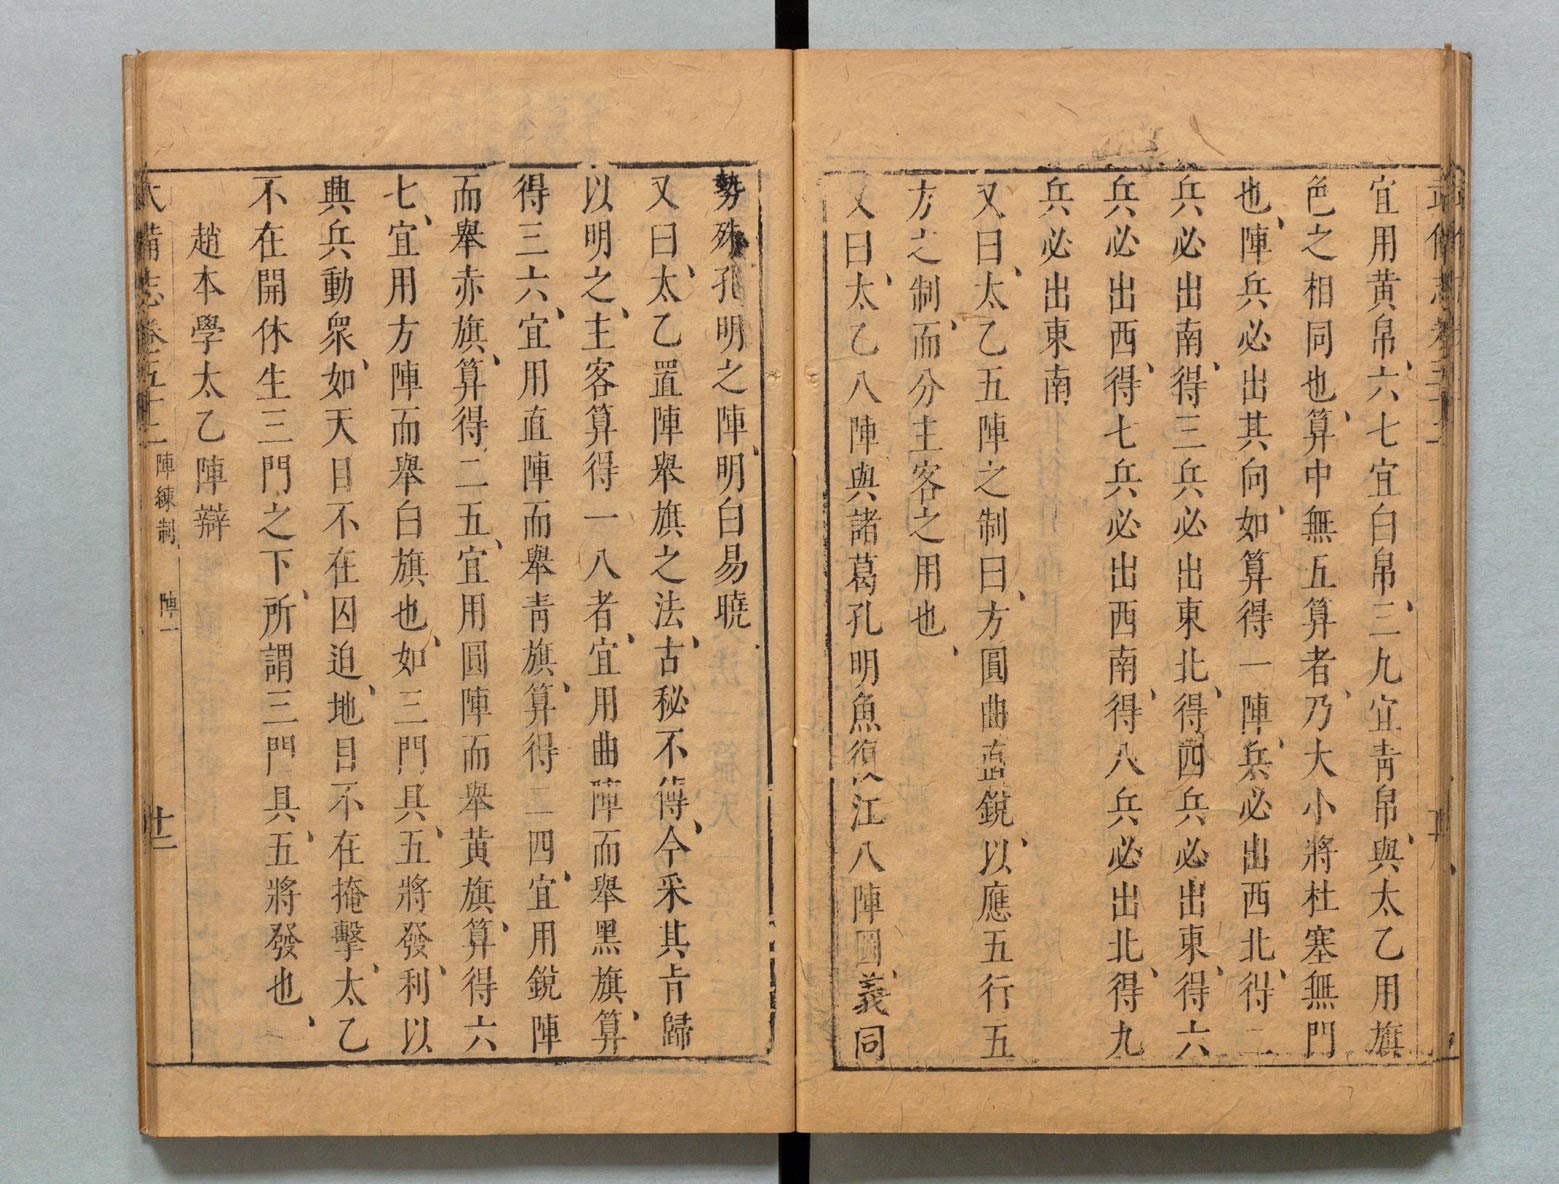 宜用黄帛、六七宜白帛、三九宜靑帛、與太乙用旗
色之相同也、算中無五算者、乃大小將杜塞無門
也、陣兵必出其向、如算得一陣、兵必出西北、得二
兵必出南、得三兵必出東北、得四兵必出東、得六
兵必出西、得七兵必出西南、得八兵必出北、得九
兵必出東南
又曰、太乙五陣之制曰、方圓曲直銳、以應五行五
方之制、而分主客之用也、
又曰、太乙八陣與諸葛孔明魚復江八陣圖、義同
勢殊孔明之陣、明白易曉
又曰、太乙置陣舉旗之法、古秘不傳、今采其旨歸
以明之、主客算得一八者、宜用曲陣而舉黑旗、算
得三六、宜用直陣而舉靑旗、算得二四、宜用銳陣
而舉赤旗、算得二五、宜用圓陣而舉黃旗、算得六
七、宜用方陣而舉白旗也、如三門具、五將發、利以
興兵動衆、如天目不在囚迫、地目不在掩擊、太乙
不在開休生三門之下、所謂三門具、五將發也、
趙本學太乙陣辯
備志卷五十二 陣練制 陣一 十二